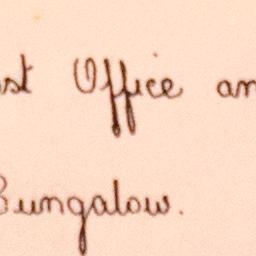 ost Office an
Bungalow.